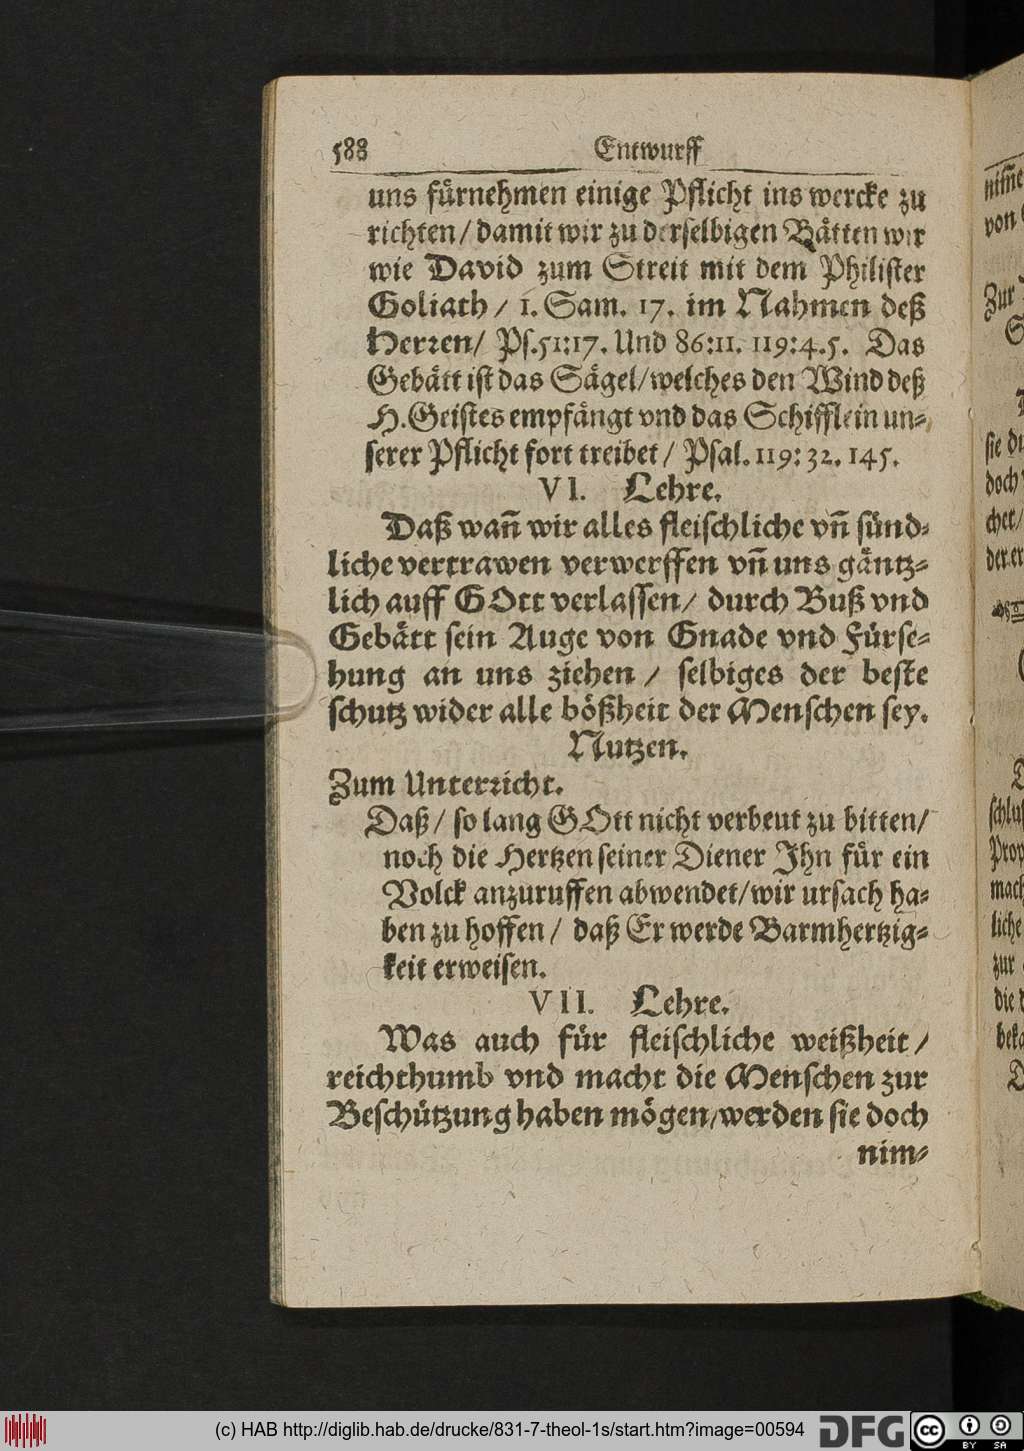 588 Entwurff
uns fürnehmen einige Pflicht ins wercke zu
richten/ damit wir zu derselbigen Bätten wir
wie David zum Streit mit dem Philister
Goliath / 1. Sam. 17. im Nahmen deß
Herren/ Ps.51:17. Und 86:11. 119:4.5. Das
Gebätt ist das Sägel/welches den Wind deß
H.Geistes empfängt vnd das Schifflein un⸗
serer Pflicht fort treibet/ Psal.119:32.145.
VI. Lehre.
Daß wañ wir alles fleischliche vñ sünd⸗
liche vertrawen verwerffen vñ uns gäntz⸗
lich auff GOtt verlassen/ durch Buß vnd
Gebätt sein Auge von Gnade vnd Fürse⸗
hung an uns ziehen / selbiges der beste
schutz wider alle bößheit der Menschen sey.
Nutzen.
Zum Unterricht.
Daß/ so lang GOtt nicht verbeut zu bitten/
noch die Hertzen seiner Diener Ihn für ein
Volck anzuruffen abwendet/wir ursach ha⸗
ben zu hoffen/ daß Er werde Barmhertzig⸗
keit erweisen.
VII. Lehre.
Was auch für fleischliche weißheit/
reichthumb vnd macht die Menschen zur
Beschützung haben mögen/werden sie doch
nim⸗
nim̃e
von
Zur
sie du
doch
cher/
der er
schlus
Prop
mach
liche
zur
die d
beka
(c) HAB http://diglib.hab.de/drucke/831-7-theol-1s/start.htm?image=00594 DFG CC BY SA